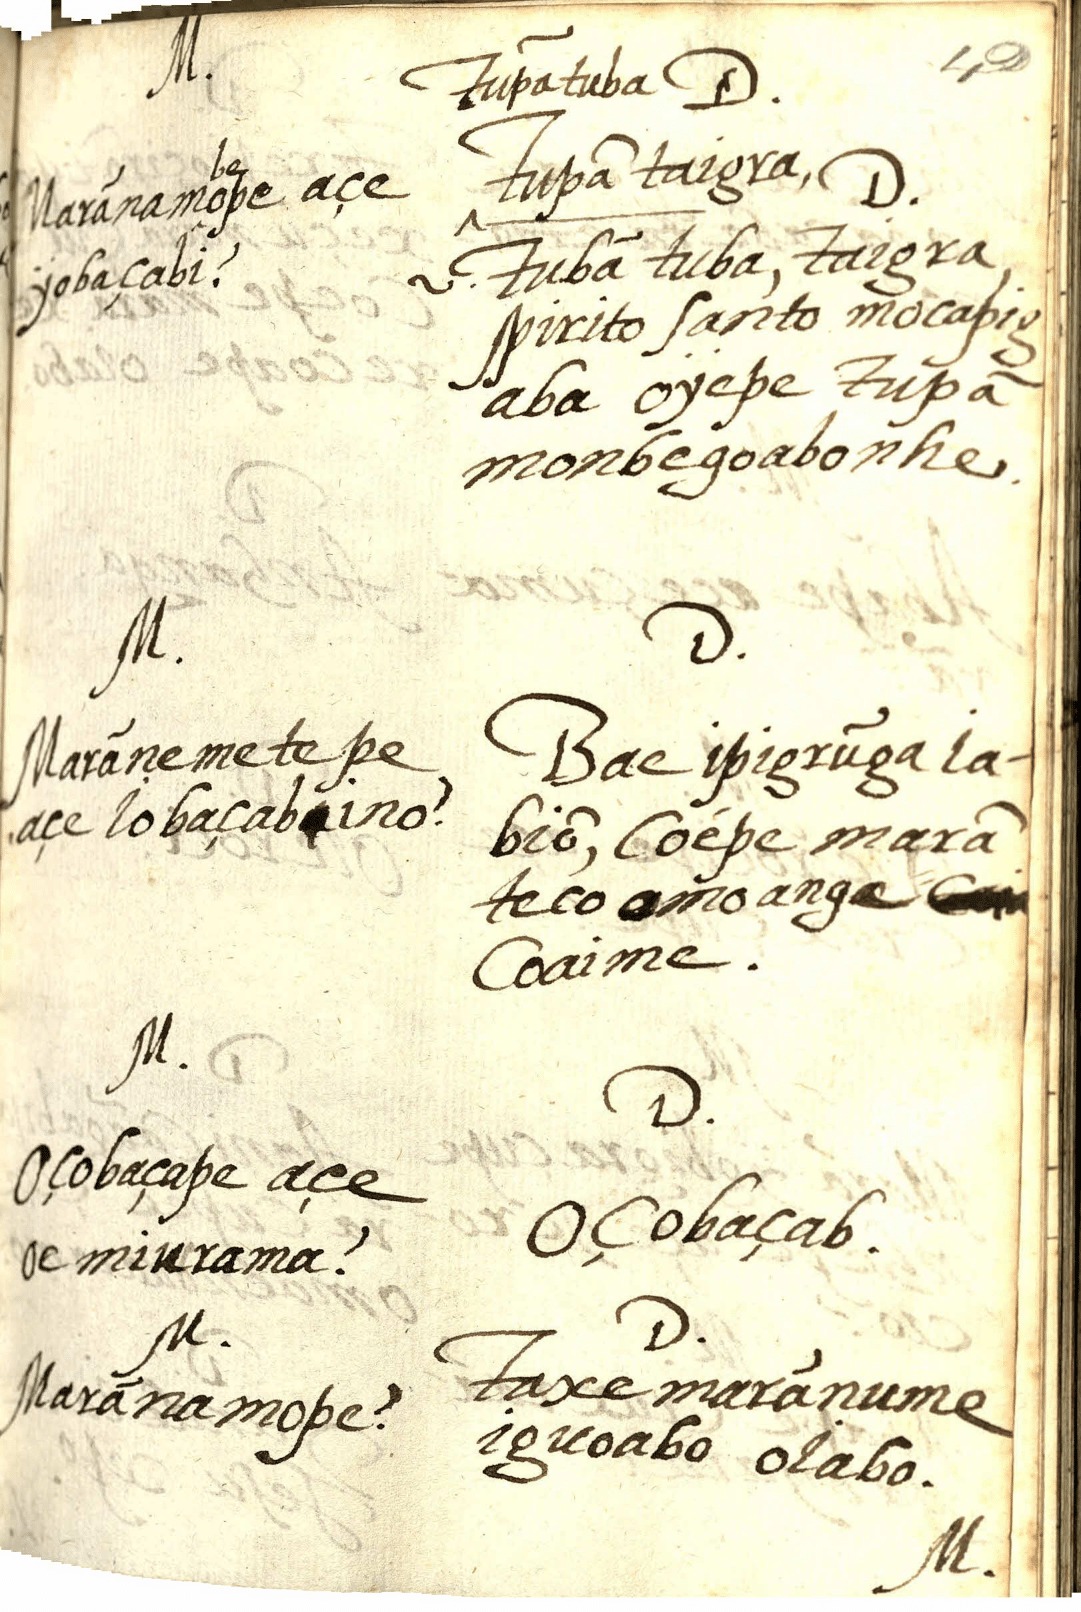 42
M.
Tupã tuba D.
Tupã taigra, D.
be
Marãnamope açe
jobaçabi?
Tubã tuba, taigra,
spirito santo mocapig
aba oÿepe Tupã
monbegoabo nhe.
M.
Marãnemetepe
açe iobaçab ino?
D.
Bae ipigrũga ia-
biõ, Coépe marã
teco amo anga
Coaime.
M.
Oçobaçape açe
oe miurama?
D.
Oçobaçab.
M.
Marãnamope?
D.
Taxe marãnume
iguoabo oiabo.
M.